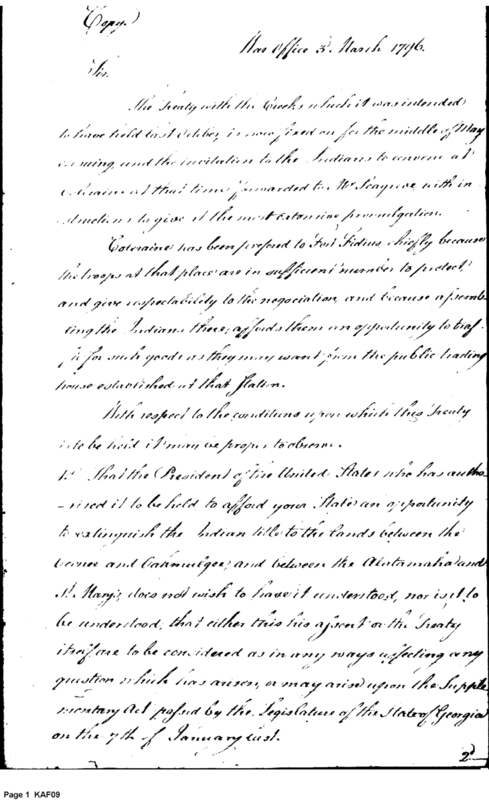 Copy.
War Office 3d. March 1796.
Sir.
The Treaty with the Creeks which it was intended
to have held last October, is now fixed on for the middle of May
ensuing, and the invitation to the Indians to convene at
Colraine at that time forwarded to Mr Seagrove with in-
structions to give it the most extensive promulgation.
Coleraine has been prefered to Fort Fidius chiefly because
the troops at that place are in sufficient number to protect
and give respectability to the negociation, and because assemb
ling the Indians there, affords them an opportunity to traf-
fic for such goods as they may want from the public trading
house established at that Station.
With respect to the conditions upon which this Treaty
is to be held it may be proper to observe.
1st That the President of the United States who has autho
-rised it to be held to afford your State an opportunity
to extinguish the Indian title to the lands between the
Oconee and Oakmulgee, and between the Alatamaha and
St. Marys, does not wish to have it understood, nor is it to
be understood, that either this his assent or the Treaty
itself are to be considered as in any ways affecting any
question which has arisen, or may arise upon the Supple
mentary Act passed by the Legislature of the State of Georgia
on the 7th of January last.
2d
Page 1 KAF09